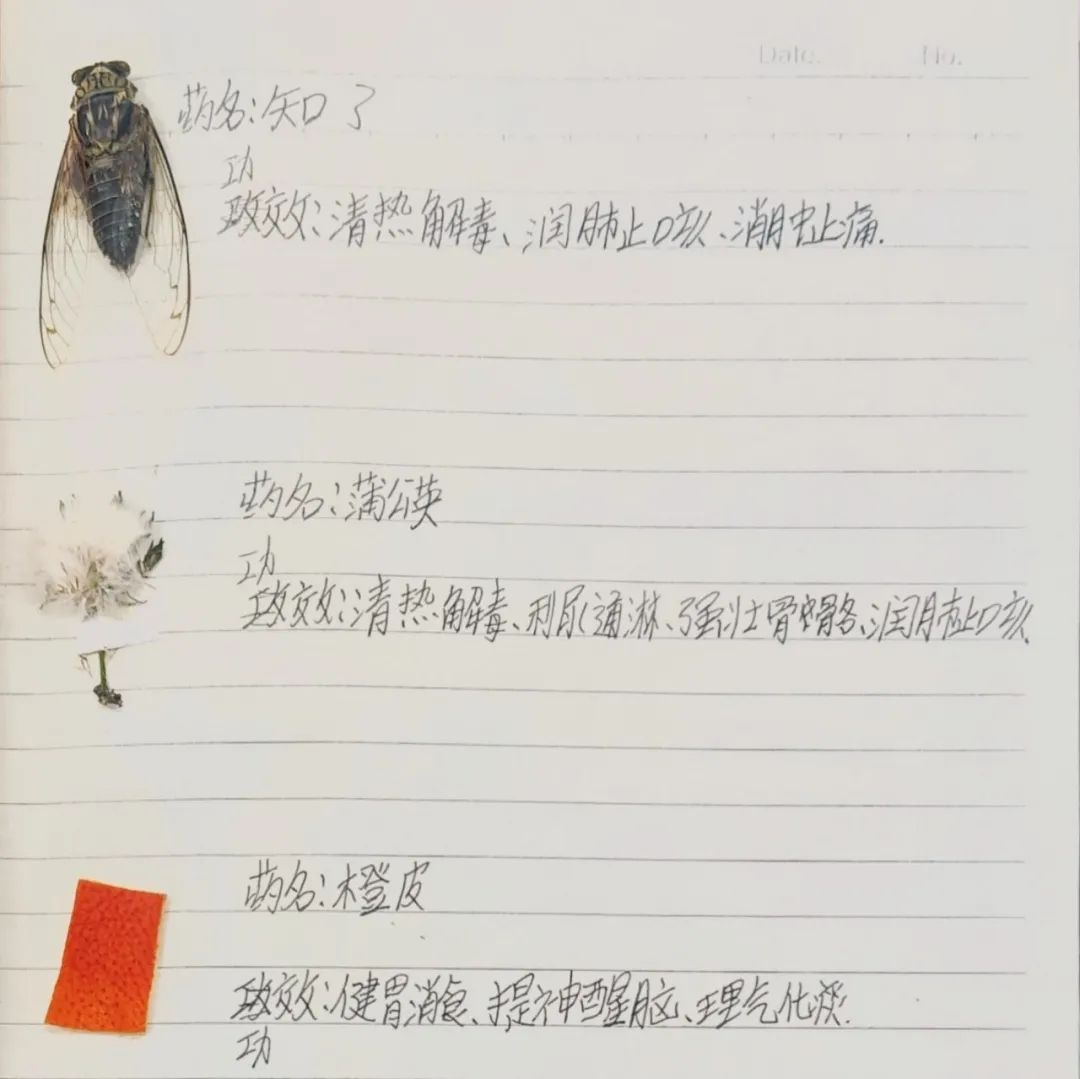 Date. No.
药名:知了
功
效:清热解毒、润肺止咳、消肿止痛.
药名:蒲公英
功
效:清热解毒、利尿通淋、强壮骨骼、润肺止咳
药名:橙皮
效:健胃消食、提神醒脑、理气化痰.
功